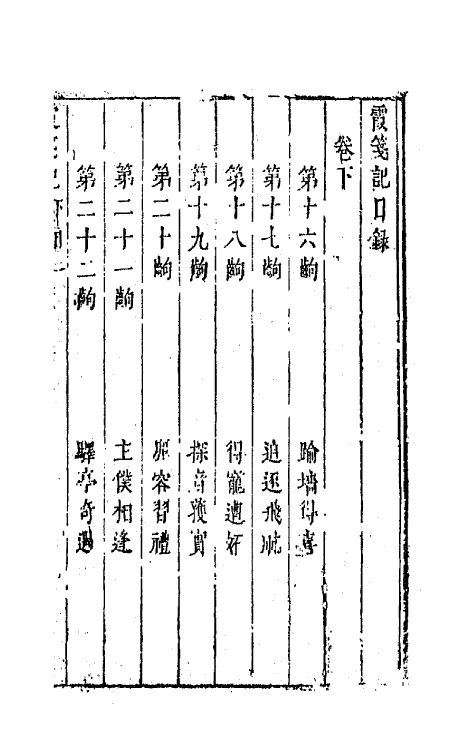 霞箋記目錄
卷下
第十六齣 踰墻得喜
第十七齣 追逐飛航
第十八齣 得寵遭妒
第十九齣 探音獲實
第二十齣 容習禮
第二十一齣 主僕相逢
第二十二齣 驛亭奇遇